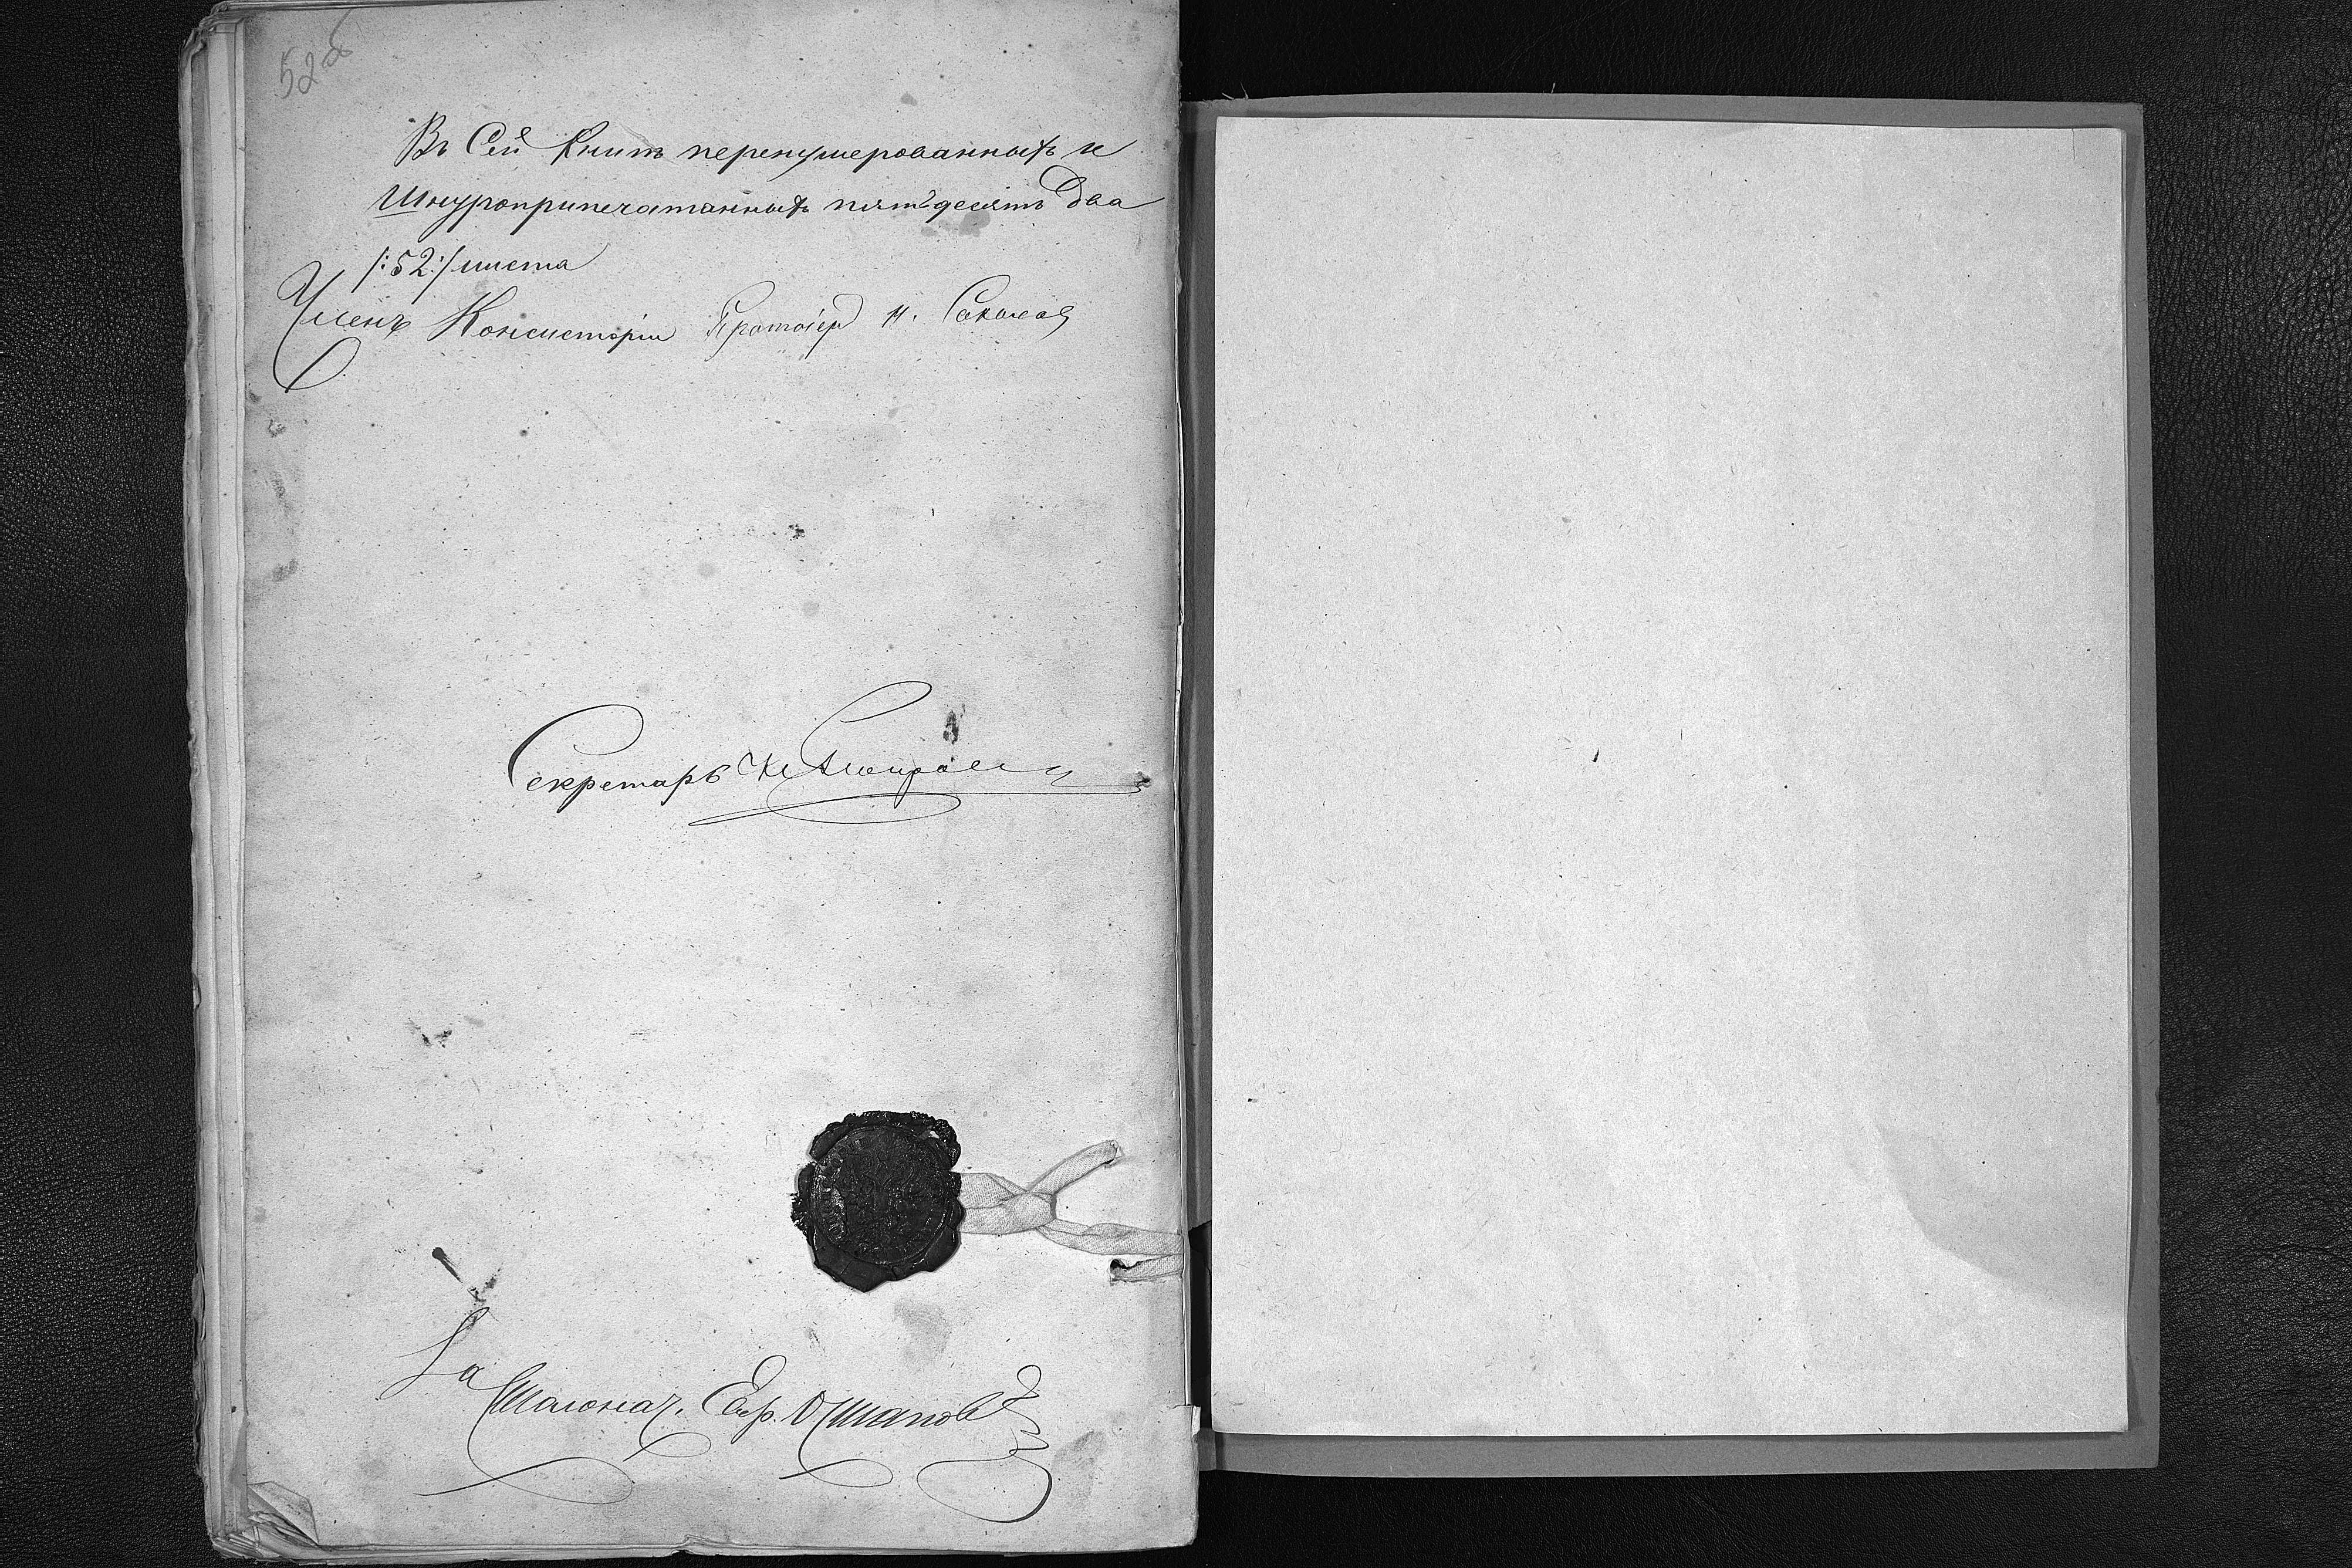 52 об
Въ Сей Книгѣ перенумерованныхъ и
Шнуроприпечатанныхъ пятьдесятъ два
/:52:/ листа
Членъ Консисторіи Протоіер Н. Соколов
Секретарь
За Столонач. Евр. Ошанов